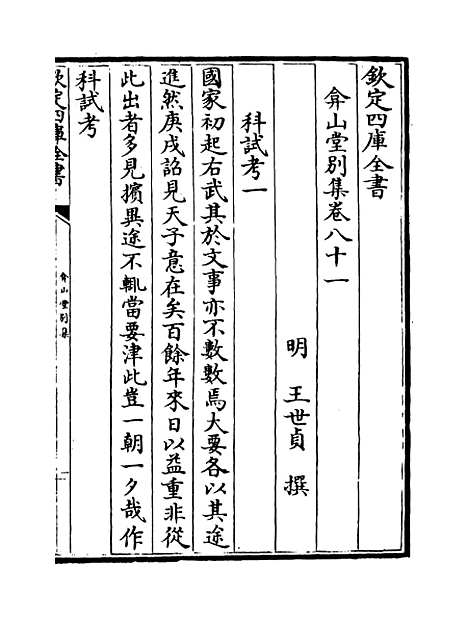 欽定四庫全書
弇山堂別集卷八十一
明 王世貞 撰
科試考一
國家初起右武其於文事亦不數數焉大要各以其途
進然庚戌詔見天子意在矣百餘年來日以益重非從
此出者多見擯異途不輒當要津此豈一朝一夕哉作
科試考
欽定四庫全書
弇山堂別集
一